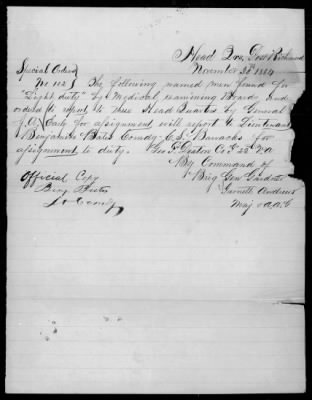 Head Qrs, Post Richmond
November 30th 1864
Special Orders
No 112 } The following named men found for
"Light duty" by Medical examining Board and
ordered to report to these Head Quarters by General
J. A. Early for assignment will report to Lieutenant
Benjamin Bates Comdg C.S. Barracks for
assignment to duty. Geo F. Deaton Co G 22 Va
By Command of
Brig Gen Gardner
Garnett Andrews
Maj & A.A.G
Official Copy
Benj Bates
Lt Comdg